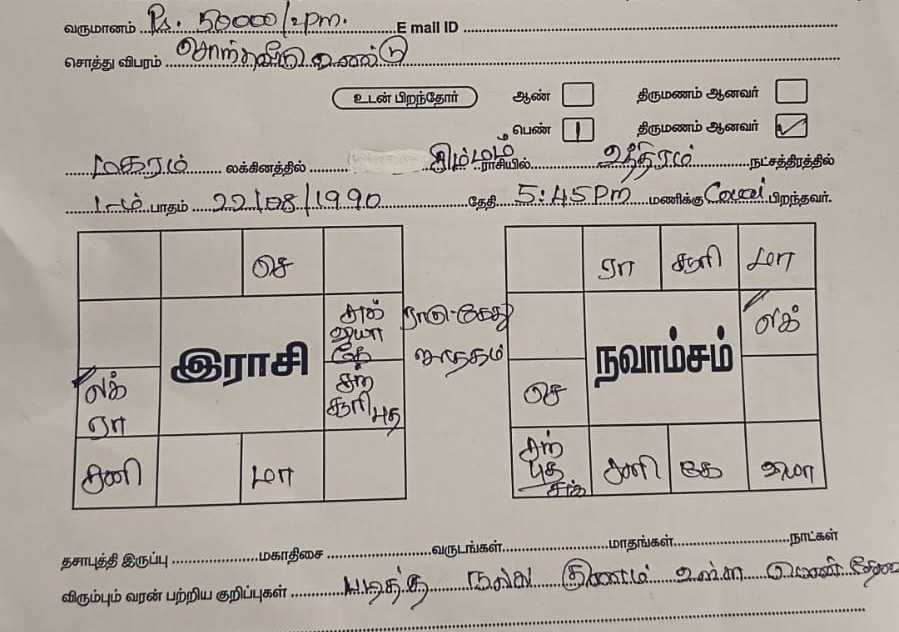 வருமானம் Rs. 50000/pm. E mail ID
சொத்து விபரம் சொந்தவீடு உண்டு
உடன் பிறந்தோர் ஆண் திருமணம் ஆனவர்
பெண் 1 திருமணம் ஆனவர் ✓
மகரம் லக்கினத்தில் சிம்மம் ராசியில் உத்திரம் நட்சத்திரத்தில்
1-ம் பாதம் 22/08/1990 தேதி 5:45 Pm மணிக்கு கோவை பிறந்தவர்.
செ ரா சனி மா
சுக் ராகு-கேது லக்
கே ஜாதகம்
இராசி நவாம்சம்
லக் சூரி புத செ
ரா
சனி மா புத சுக் சனி கே
தசாபுத்தி இருப்பு மகாதிசை வருடங்கள் மாதங்கள் நாட்கள்
விரும்பும் வரன் பற்றிய குறிப்புகள் படித்த நல்ல குணம் உள்ள பெண் தேவை